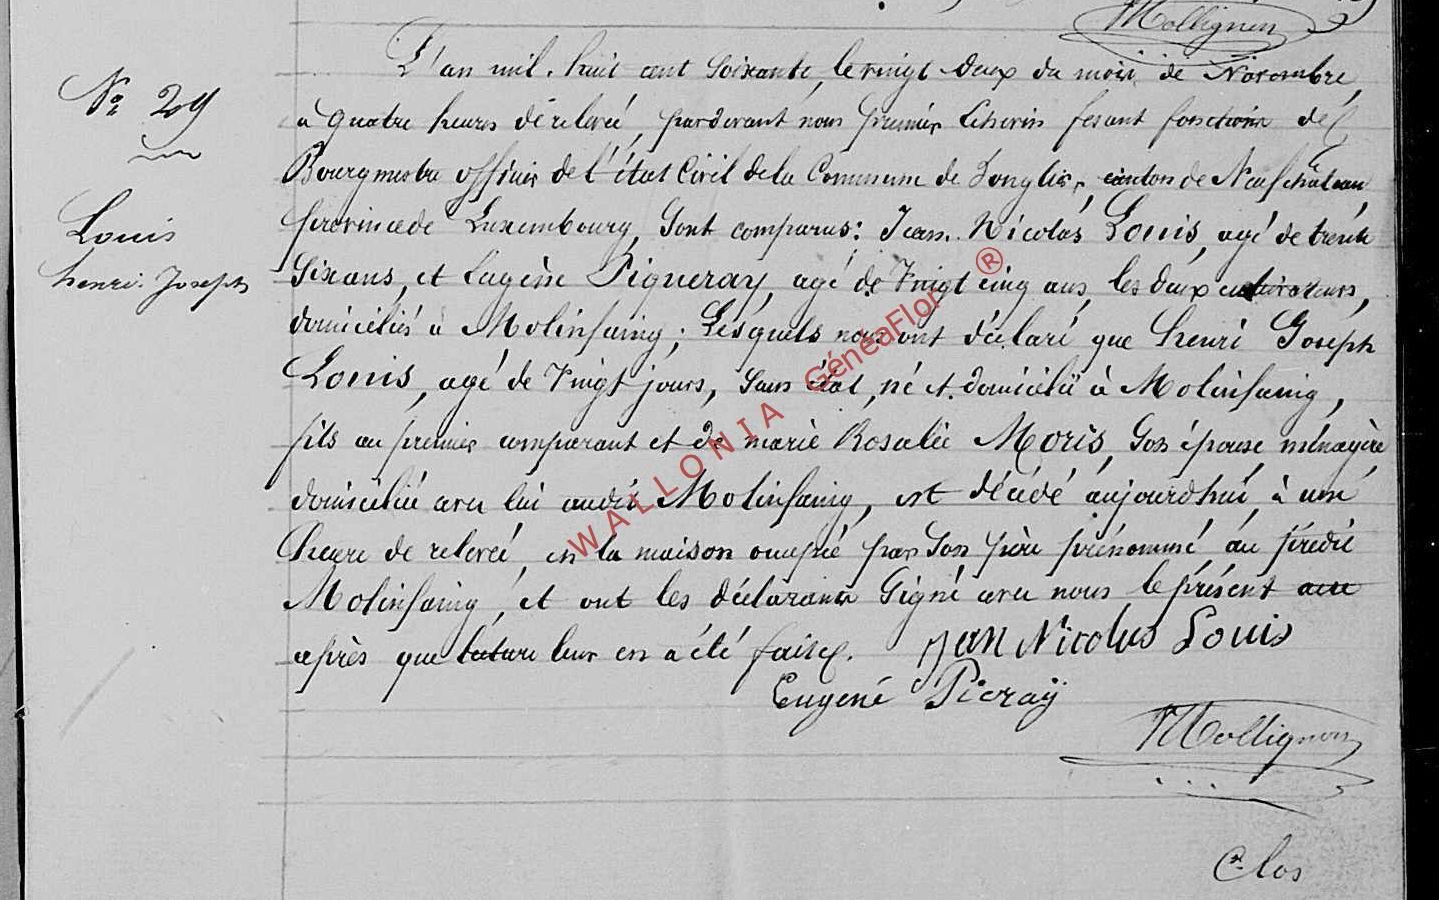 Mollignon
N° 29
Louis
henri. Joseph
L'an mil. huit cent soixante, le vingt deux du mois de Novembre,
a quatre heures de relevée, pardevant nous premier Echevin fesant fonctions de
Bourgmestre officier de l'état Civil de la Commune de Longlier, canton de Neufchateau
province de Luxembourg, sont comparus: Jean. Nicolas Louis, agé de trente
six ans, et Eugène Pigueray, agé de vingt cinq ans, les deux cultivateurs,
domiciliés à Molinfaing; Lesquels nous ont déclaré que henri Joseph
Louis, agé de vingt jours, sans état, né et domicilié à Molinfaing,
fils au premier comparant et de marie Rosalie Moris, son épouse ménagère
domiciliée avec lui audit Molinfaing, est décédé aujourdhui, à une
heure de relevée, en la maison occupée par son père prénommé au prédit
Molinfaing, et ont les déclarants signé avec nous le présent acte
après que lecture leur en a été faite.
Jean Nicolas Louis
Eugené Picray
Mollignon
Clos
WALLONIA GénéaFlor ®